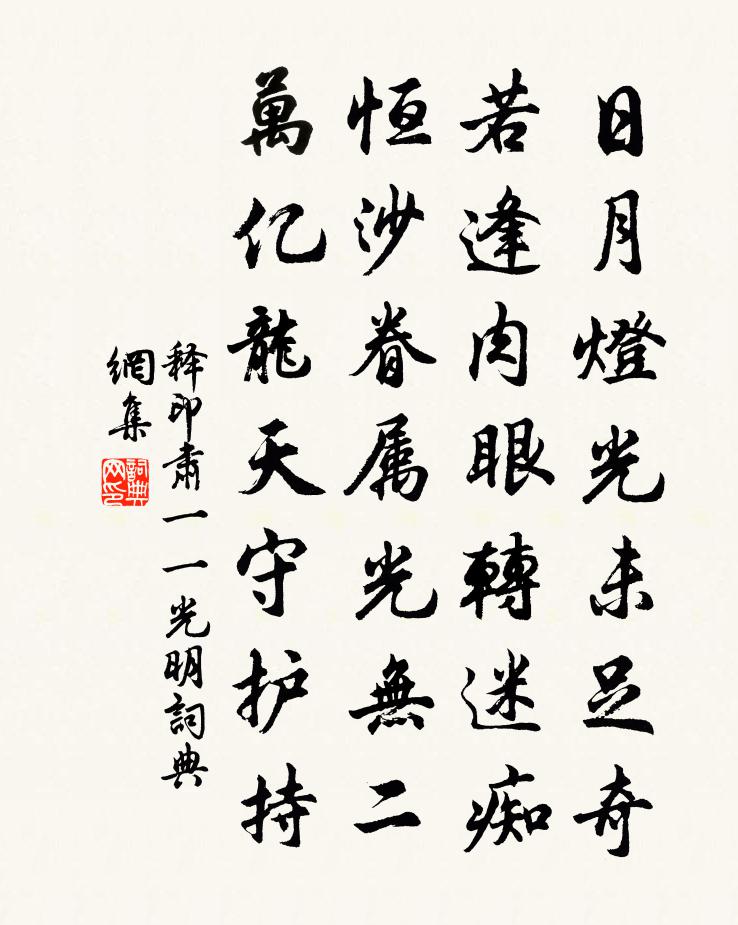 日月燈光未足奇
若逢肉眼轉迷痴
恒沙眷属光無二
萬亿龍天守护持
释印肅一一光明詞典
網集
詞典網印